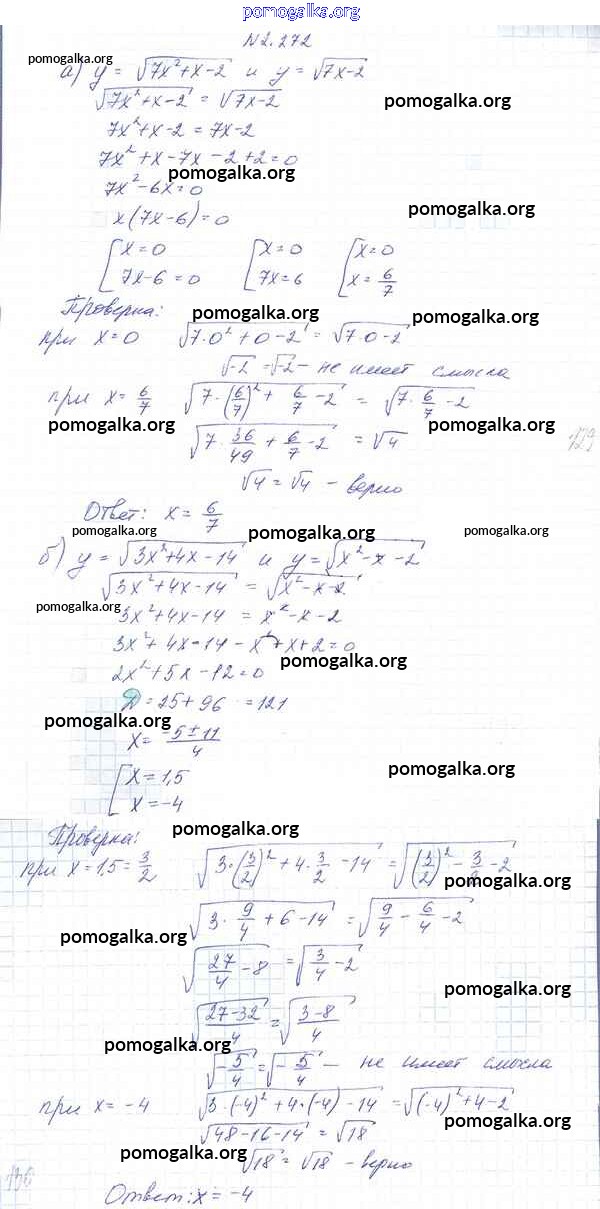 pomogalka.org
N 2.272
pomogalka.org
а) y = √(7x²+x-2) и y = √(7x-2)
√(7x²+x-2) = √(7x-2)
pomogalka.org
7x²+x-2 = 7x-2
7x²+x-7x-2+2=0
pomogalka.org
7x²-6x=0
pomogalka.org
x(7x-6)=0
[x=0 [x=0 [x=0
7x-6=0 7x=6 x=6/7
Проверка: pomogalka.org pomogalka.org
при x=0 √(7·0²+0-2) = √(7·0-2)
√-2 = √-2 - не имеет смысла
при x=6/7 √(7·(6/7)²+6/7-2) = √(7·6/7-2)
pomogalka.org pomogalka.org 129
√(7·36/49+6/7-2) = √4
√4 = √4 - верно
Ответ: x = 6/7
pomogalka.org pomogalka.org pomogalka.org
б) y = √(3x²+4x-14) и y = √(x²-x-2)
√(3x²+4x-14) = √(x²-x-2)
pomogalka.org
3x²+4x-14 = x²-x-2
3x²+4x-14-x²+x+2=0
pomogalka.org
2x²+5x-12=0
D=25+96=121
pomogalka.org
x = (-5±11)/4
pomogalka.org
[x=1,5
x=-4
Проверка: pomogalka.org
при x=1,5=3/2 √(3·(3/2)²+4·3/2-14) = √((3/2)²-3/2-2)
pomogalka.org
√(3·9/4+6-14) = √(9/4-6/4-2)
pomogalka.org
√(27/4-8) = √(3/4-2)
pomogalka.org
√((27-32)/4) = √((3-8)/4)
pomogalka.org
√(-5/4) = √(-5/4) - не имеет смысла
при x=-4 √(3·(-4)²+4·(-4)-14) = √((-4)²+4-2)
pomogalka.org
√(48-16-14) = √18
pomogalka.org
√18 = √18 - верно
130
Ответ: x = -4